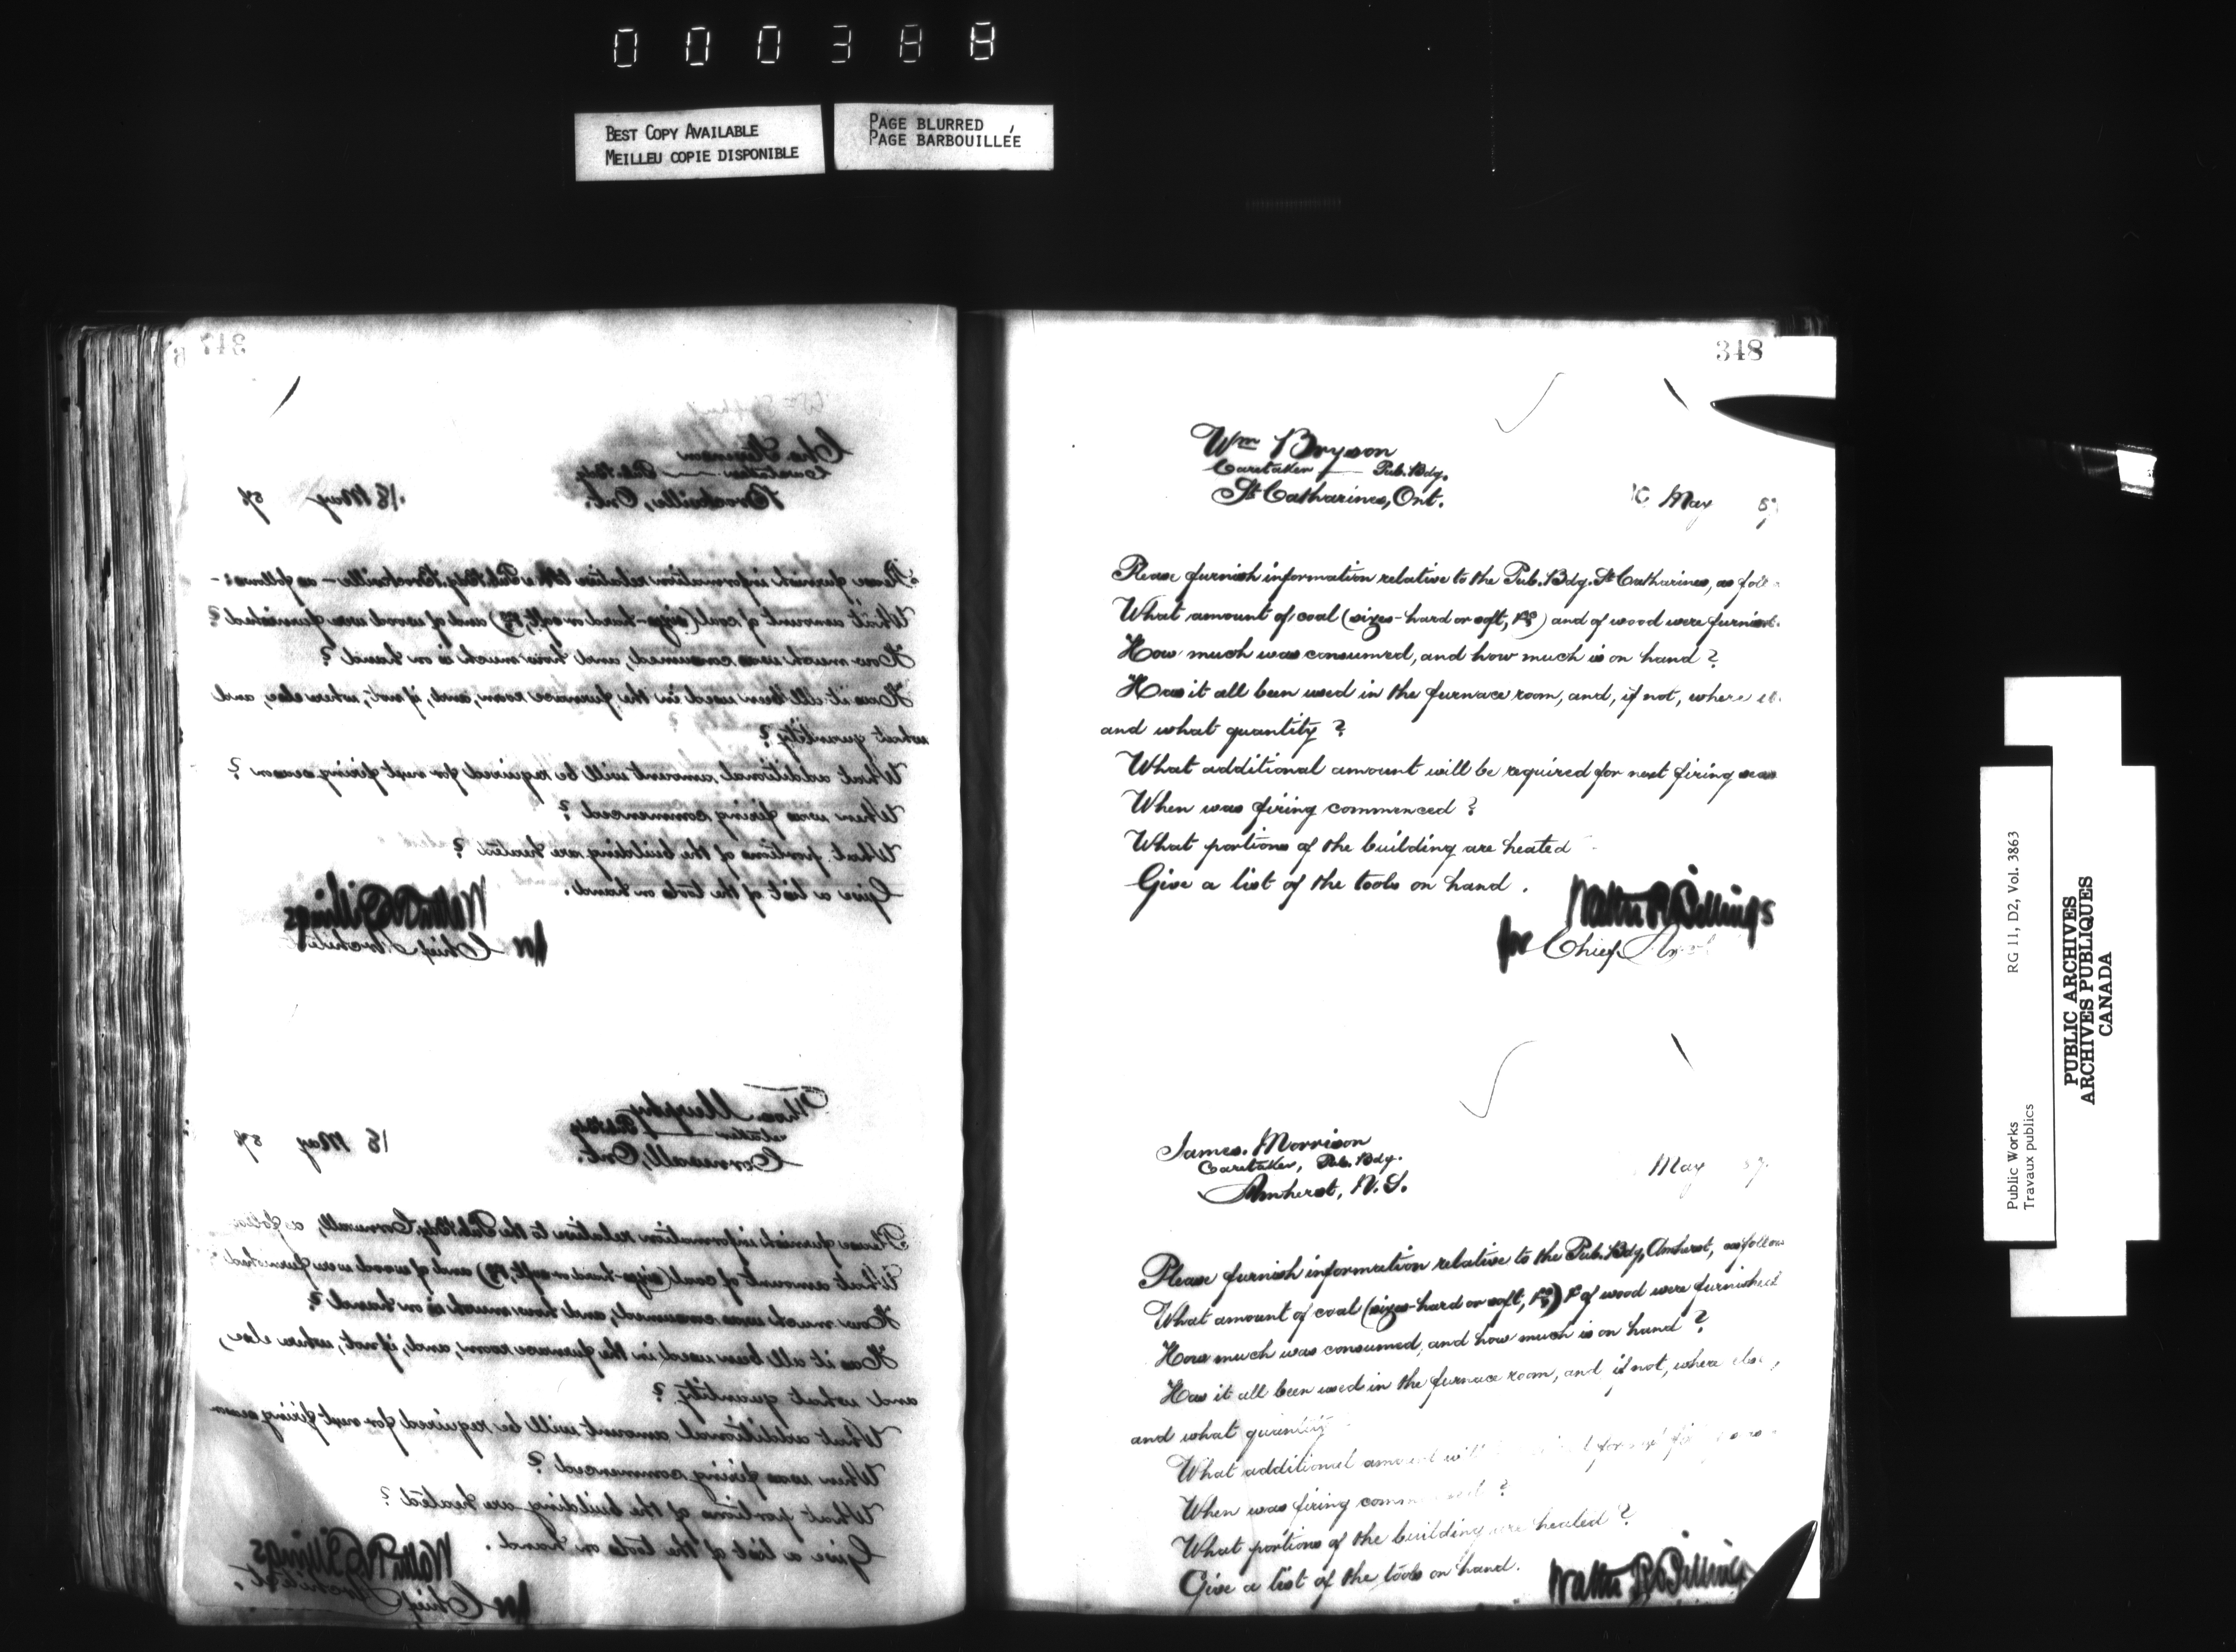 000388
BEST COPY AVAILABLE
MEILLEU COPIE DISPONIBLE
PAGE BLURRED
PAGE BARBOUILLÉE
347
Caretaker — Pub. Bdg.
Brockville, Ont.
18 May 87
Please furnish information relative to the Pub. Bdg. Brockville – as follows:-
What amount of coal (sizes-hard or soft, &c) and of wood were furnished?
How much was consumed, and how much is on hand?
Has it all been used in the furnace room, and, if not, where else, and
what quantity?
What additional amount will be required for next firing season?
When was firing commenced?
What portions of the building are heated?
Give a list of the tools on hand.
Walter R Billings
for Chief Architect
Thos. Murphy
Pub. Bdg
Cornwall, Ont.
18 May 87
Please furnish information relative to the Pub. Bdg. Cornwall, as follows
What amount of coal (sizes-hard or soft, &c) and of wood were furnished?
How much was consumed, and how much is on hand?
Has it all been used in the furnace room, and, if not, where else,
and what quantity?
What additional amount will be required for next firing season
When was firing commenced?
What portions of the building are heated?
Give a list of the tools on hand.
Walter R Billings
for Chief Architect.
348
Wm Bryson
Caretaker — Pub. Bdg.
St Catharines, Ont.
May 87
Please furnish information relative to the Pub. Bdg. St Catharines, as foll
What amount of coal (sizes-hard or soft, &c) and of wood were furnish
How much was consumed, and how much is on hand?
Has it all been used in the furnace room, and, if not, where el
and what quantity?
What additional amount will be required for next firing seas
When was firing commenced?
What portions of the building are heated
Give a list of the tools on hand.
Walter R Billings
for Chief Ar
James. Morrison
Caretaker, Pub. Bdg.
Amherst, N.S.
May 87.
Please furnish information relative to the Pub. Bdg, Amherst, as follows
What amount of coal (sizes-hard or soft, &c) & of wood were furnished
How much was consumed, and how much is on hand?
Has it all been used in the furnace room, and if not, where else,
and what quantity
What additional amount wil for next
When was firing comm ?
What portions of the building are heated?
Give a list of the tools on hand.
Walter R Billings
Public Works
Travaux publics
RG 11, D2, Vol. 3863
PUBLIC ARCHIVES
ARCHIVES PUBLIQUES
CANADA